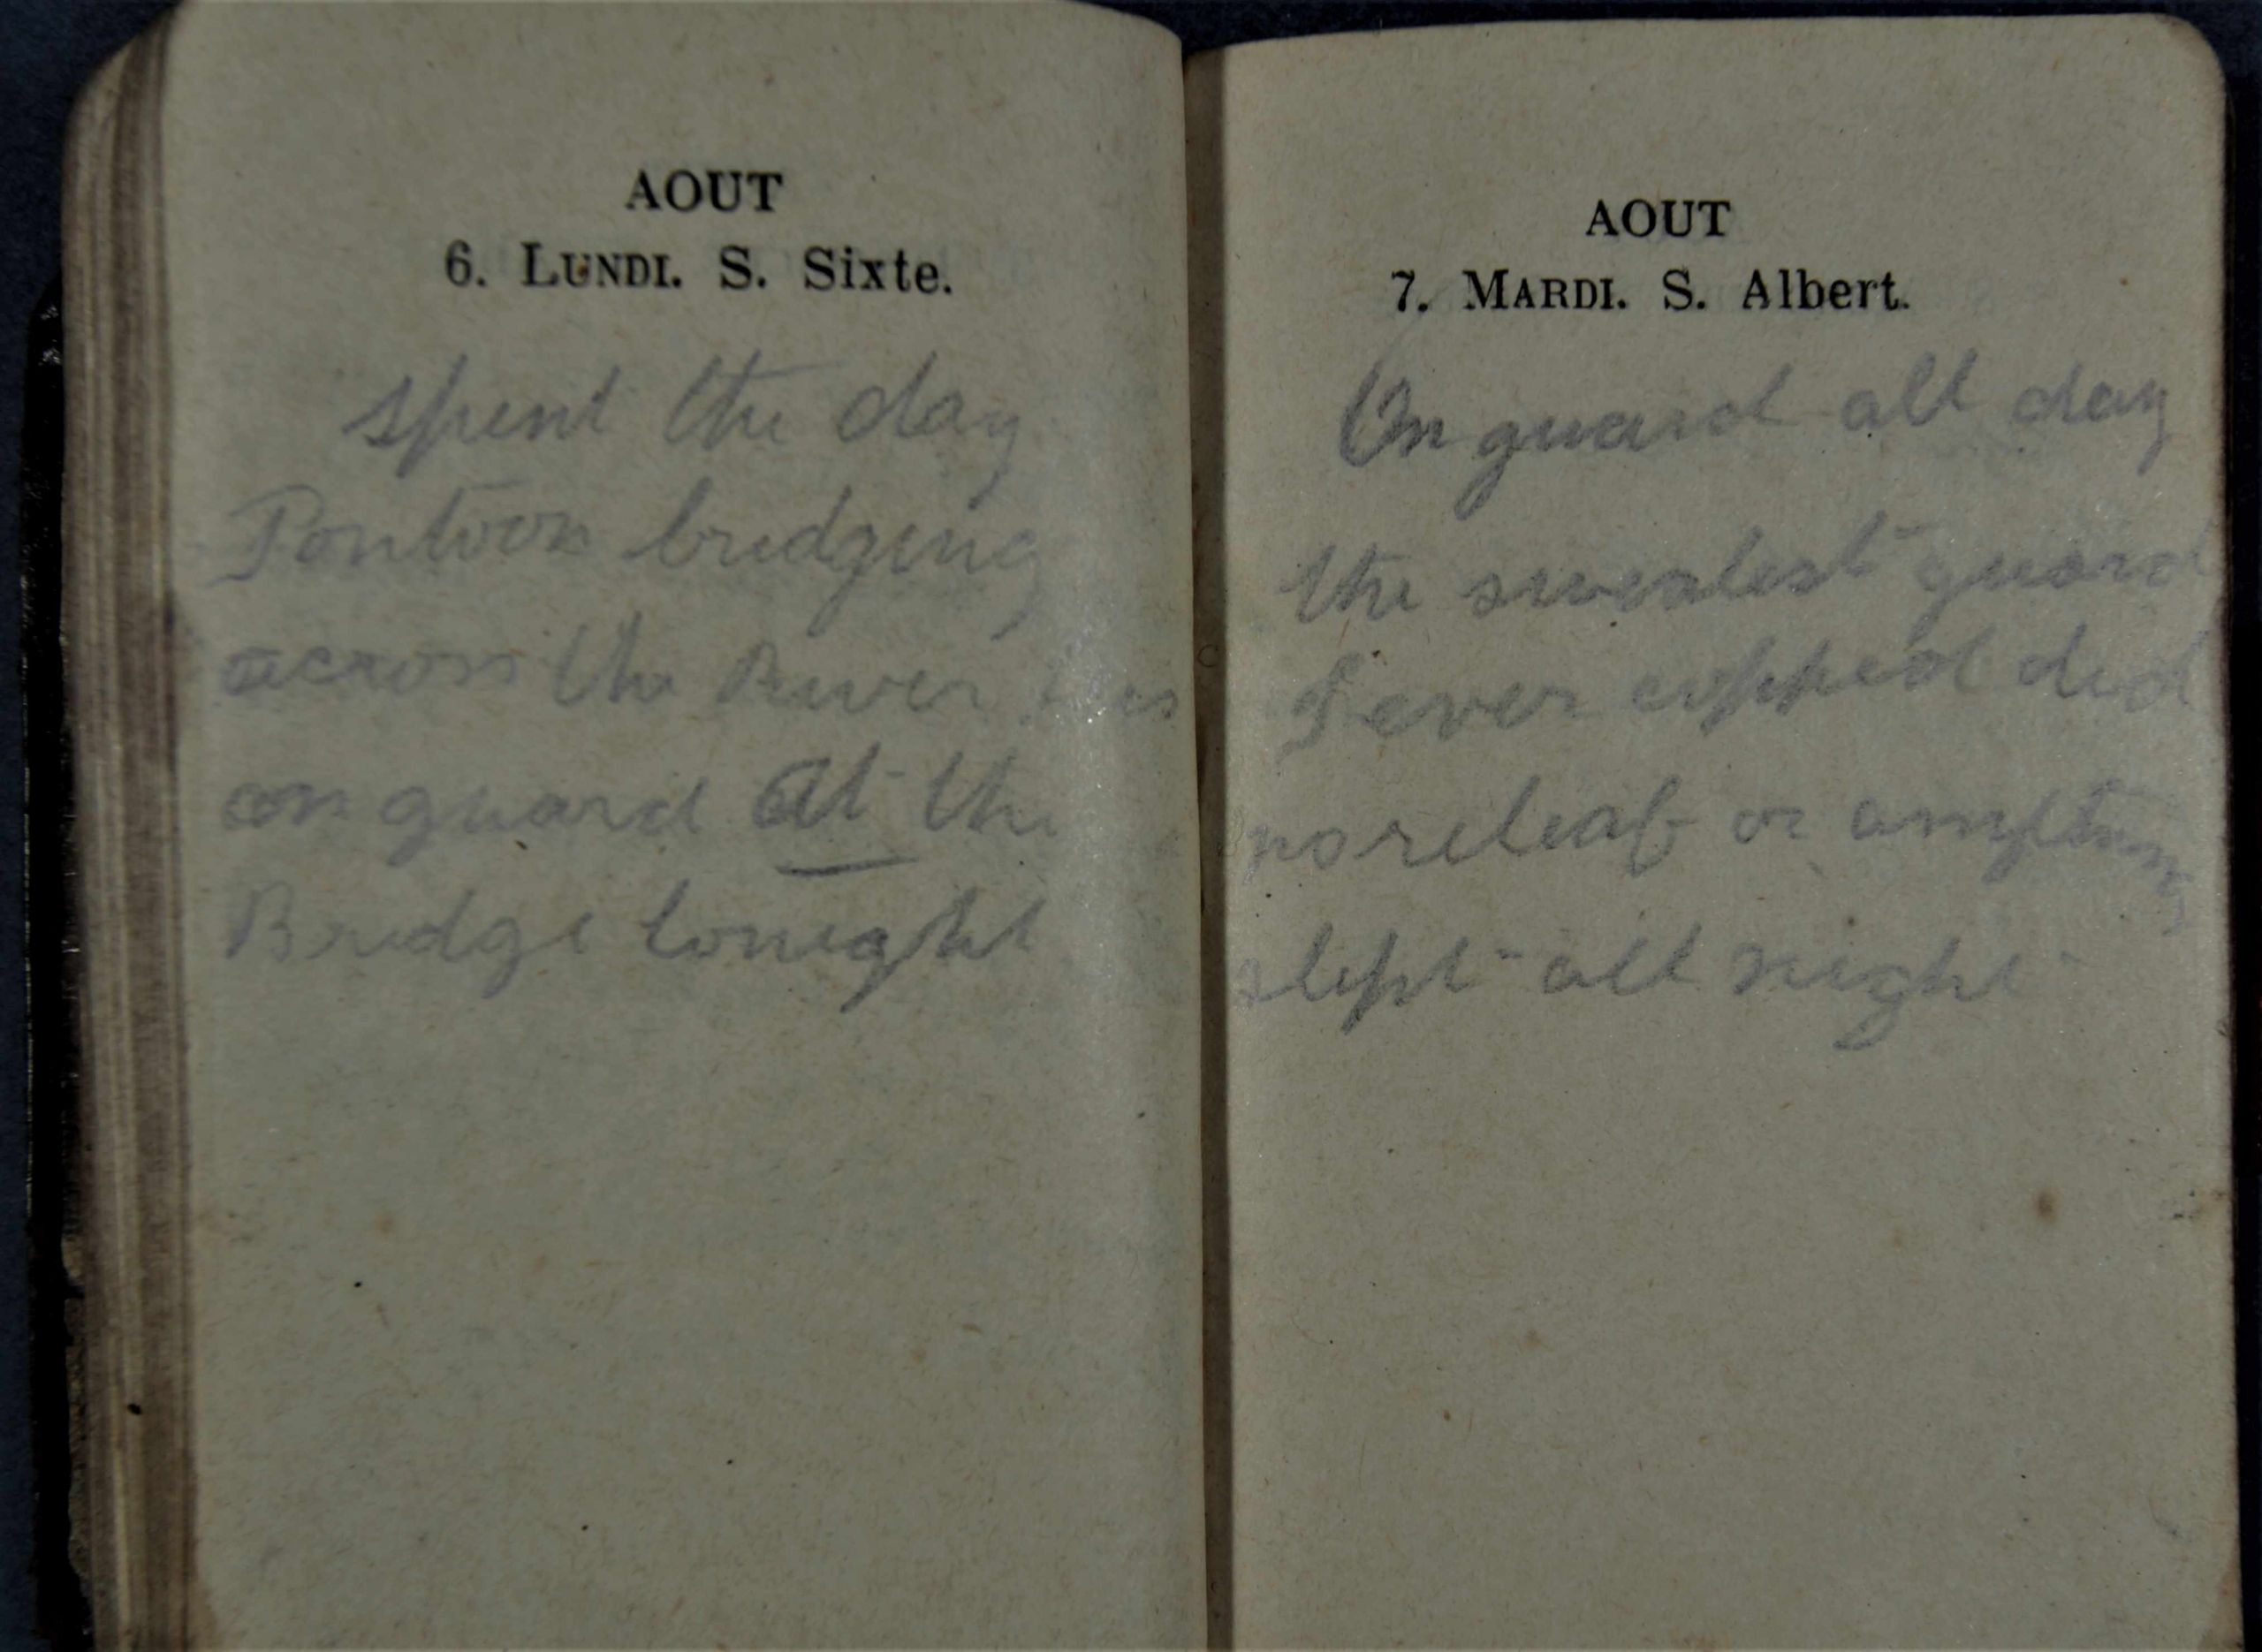 AOUT
6. LUNDI. S. Sixte.
spent the day
Pontoon bridging
across the River
on guard at the
Bridge tonight
AOUT
7. MARDI. S. Albert.
On guard all day
the guard
I ever copped did
no releaf or anything
slept all night